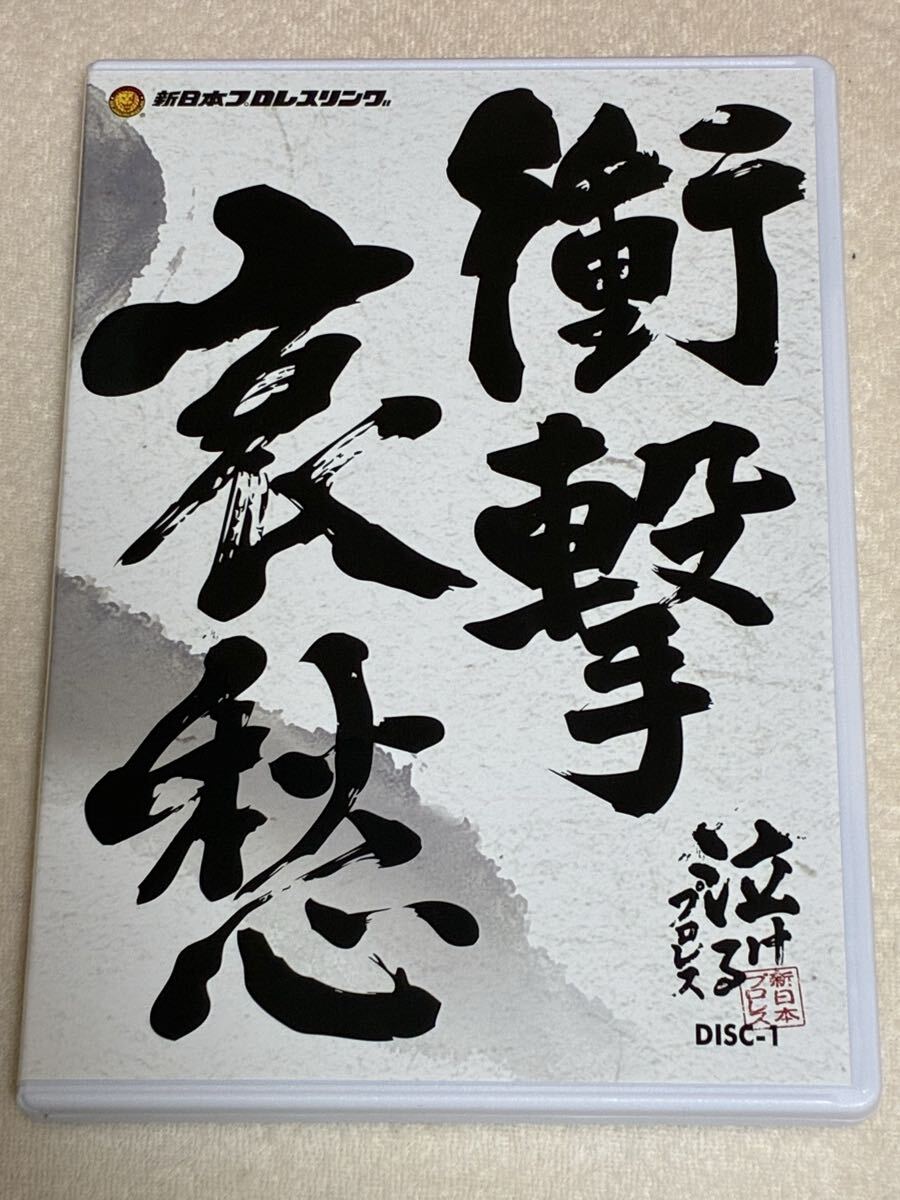 新日本プロレスリング
衝撃
哀愁
泣ける
プロレス
新日本
プロレス
DISC-1